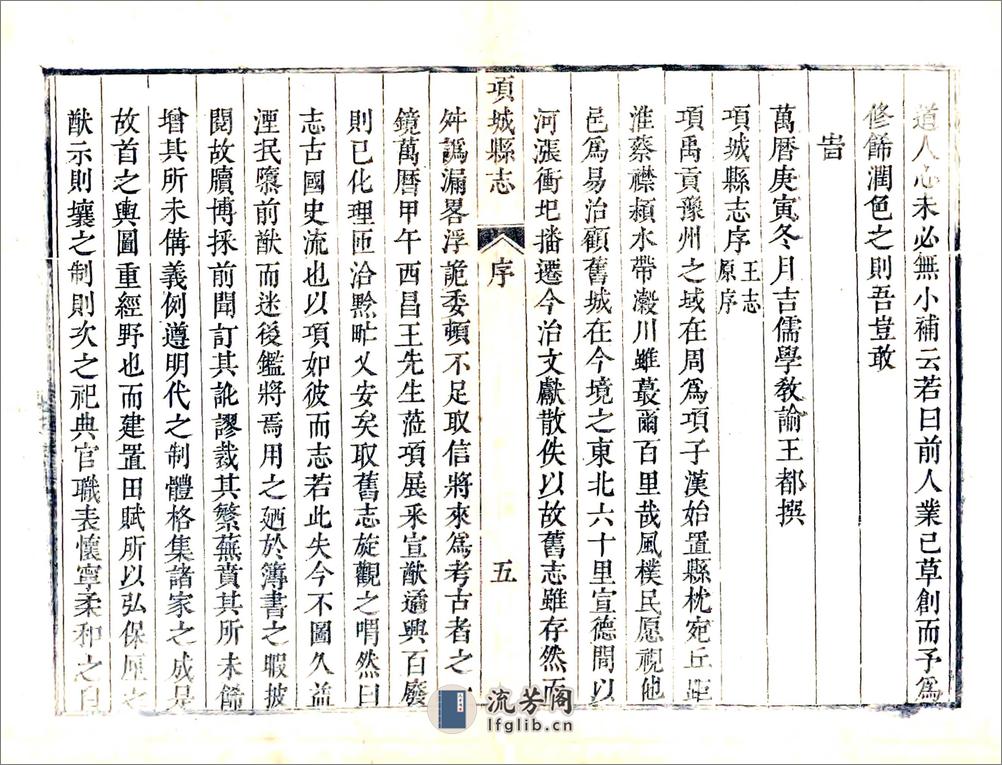 道人心未必無小補云若曰前人業已草創而予爲
修篩潤色之則吾豈敢
旹
萬曆庚寅冬月吉儒學敎諭王都撰
項城縣志序王志原序
項禹貢豫州之域在周爲項子漢始置縣枕宛丘距
淮蔡襟潁水帶瀔川雖蕞爾百里哉風樸民愿視他
邑爲易治顧舊城在今境之東北六十里宣德間以
河漲衝圮播遷今治文獻散佚以故舊志雖存然而
項城縣志
序
五
舛譌漏畧浮詭委頓不足取信將來爲考古者之一
鏡萬曆甲午西昌王先生蒞項展釆宣猷遹興百廢
則已化理匝洽黔甿乂安矣取舊志旋觀之喟然曰
志古國史流也以項如彼而志若此失今不圖久益
湮抿隳前猷而迷後鑑將焉用之廼於簿書之暇披
閱故牘博採前聞訂其訛謬裁其繁蕪賁其所未餙
增其所未備義例遵明代之制體格集諸家之成是
故首之輿圖重經野也而建置田賦所以弘保厘之
猷示則壤之制則次之祀典官職表懷寧柔和之
流芳阁
lfglib.cn